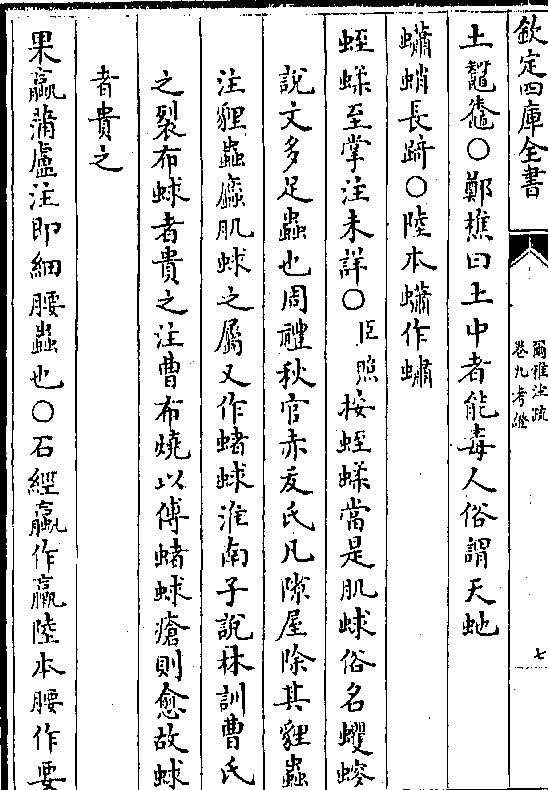 欽定四庫全書
爾雅注疏
卷九考證
七
土䵹鼀○鄭樵曰土中者能毒人俗謂天虵
蠨蛸長踦○陸本蠨作蟰
蛭蝚至掌注未詳○臣照按蛭蝚當是肌蛷俗名蠷螋
説文多足蟲也周禮秋官赤犮氏凡隙屋除其貍蟲
注貍蟲䗪肌蛷之屬又作蛛蛷淮南子說林訓曹氏
之裂布蛷者貴之注曹布燒以傅蛛蛷瘡則愈故蛷
者貴之
果蠃蒲盧注即細腰蟲也○石經蠃作臝陸本腰作要